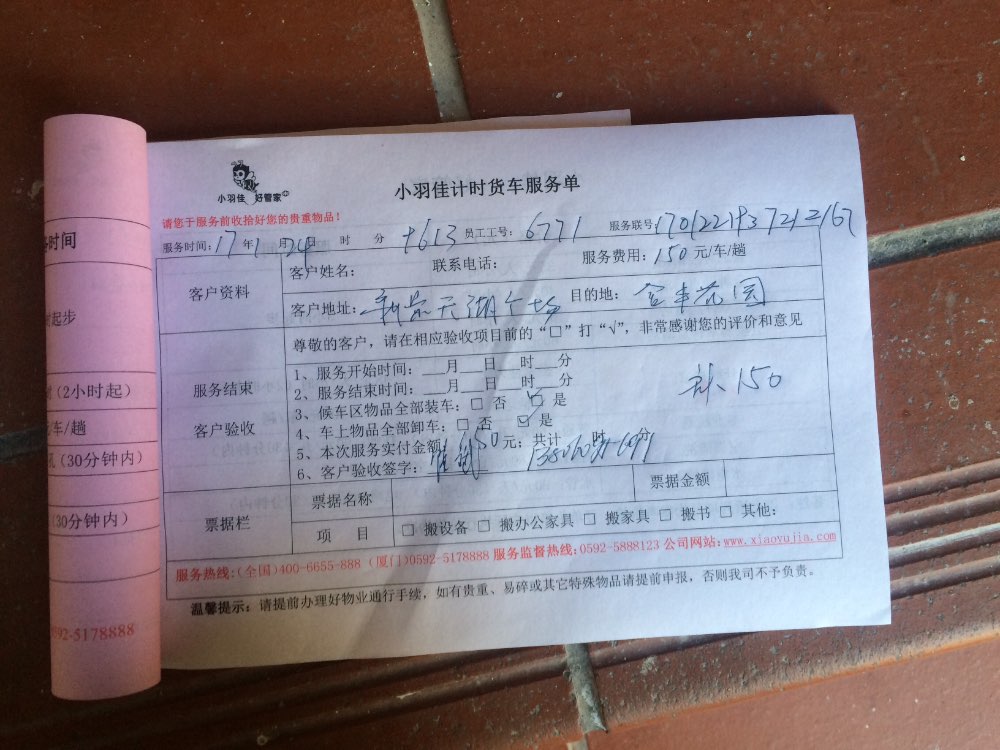 小羽佳 好管家
小羽佳计时货车服务单
请您于服务前收拾好您的贵重物品！
服务时间：17年1月24日 时 分 +613 员工工号：6771 服务联号：
客户资料
客户姓名： 联系电话： 服务费用：150元/车/趟
客户地址：天湖广场 目的地：金丰花园
服务结束
客户验收
尊敬的客户，请在相应验收项目前的“□”打“√”，非常感谢您的评价和意见
1、服务开始时间：___月___日___时___分
2、服务结束时间：___月___日___时___分
3、候车区物品全部装车：□ 否 ☑ 是
4、车上物品全部卸车：□ 否 ☑ 是
5、本次服务实付金额：150元；共计 时 分
6、客户验收签字：
计、150
票据栏
票据名称 票据金额
项 目 □ 搬设备 □ 搬办公家具 □ 搬家具 □ 搬书 □ 其他：
服务热线：(全国)400-6655-888 (厦门)0592-5178888 服务监督热线：0592-5888123 公司网站：www.xiaoyujia.com
温馨提示：请提前办理好物业通行手续，如有贵重、易碎或其它特殊物品请提前申报，否则我司不予负责。
时间
起步
(2小时起)
车/趟
(30分钟内)
(30分钟内)
0592-5178888